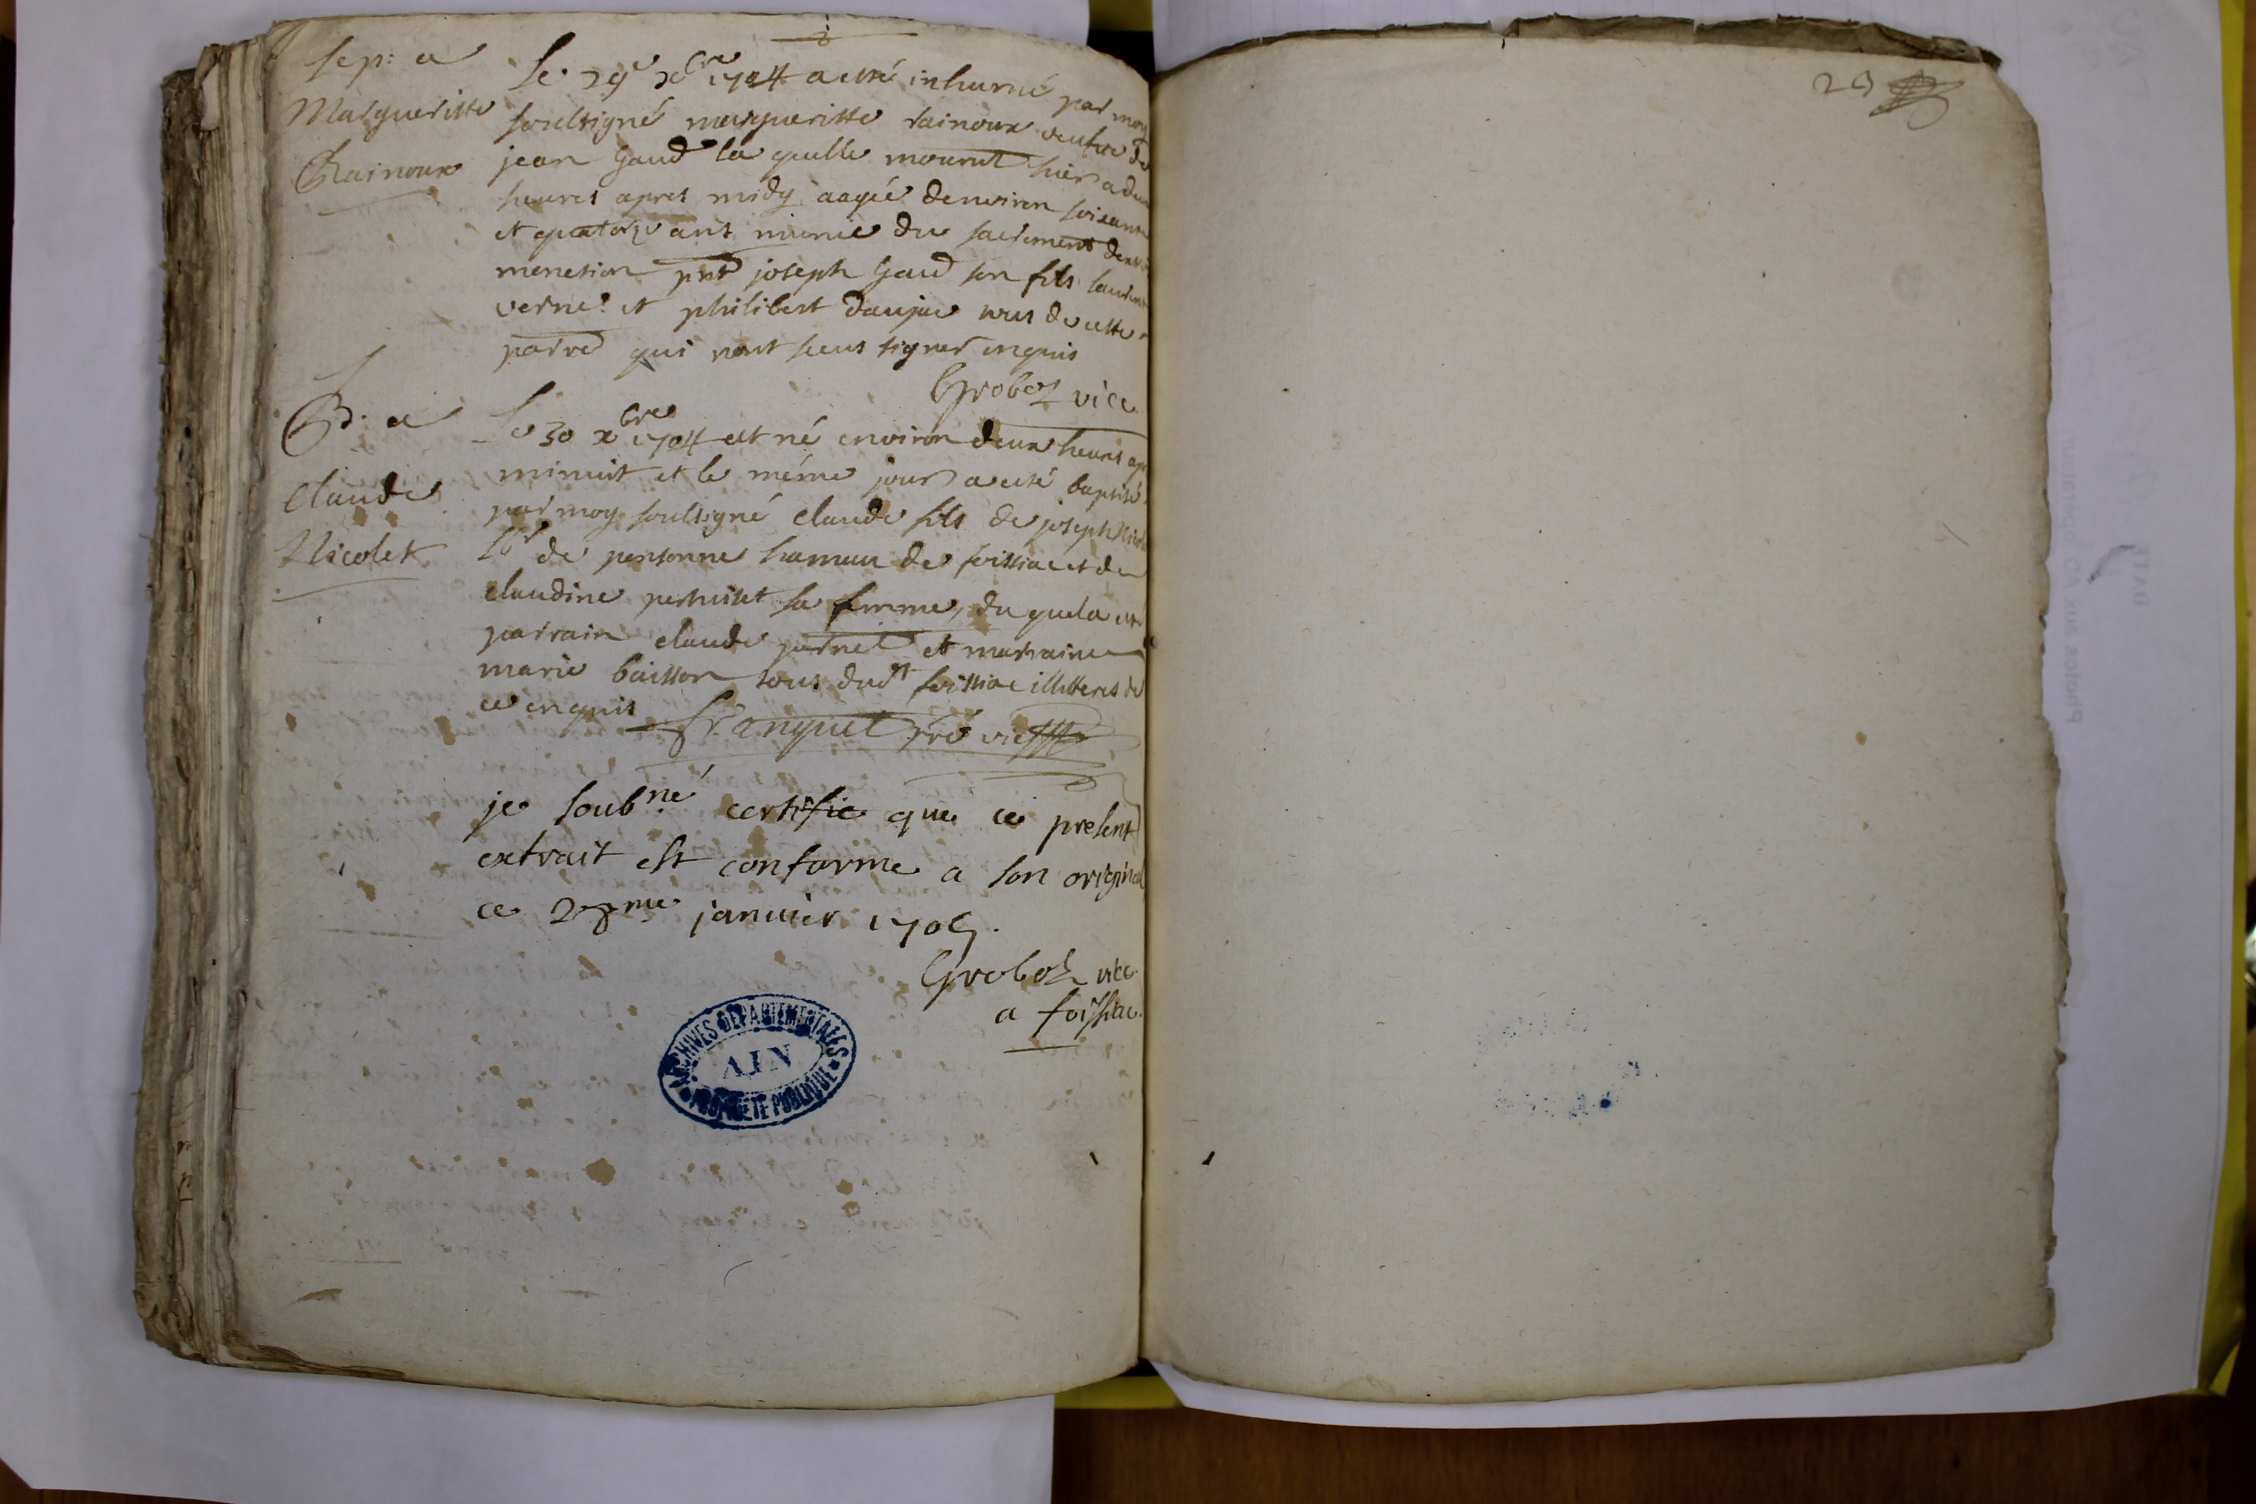 Sep: a
Margueritte
Rainoux
Le 29e xbre 1704 a esté inhumé par moy
soussigné margueritte rainoux veufve de
jean Gaud la quelle mourut hier a deux
heures apres midy aagée denviron soixante
et quatorze ans munie du sacrement dextr
menction pnt joseph Gaud son fils laurent
verne et philibert daujat tous de cette
parre qui nont sceus signer enquis
Groboz vice
B. a
Claude
Nicolet
Le 30 xbre 1704 est né environ deux heures apr
minuit et le méme jour a esté baptisé
par moy soussigné claude fils de joseph Nicol
Lbr de personne hameau de foissiac et de
claudine perruset sa femme, du quel a esté
parrain claude pernet et marraine
marie buisson tous dudt foissiac illitteres de
ce enquis
franquet pre vic
je soubné certifie que ce present
extrait est conforme a son original
ce 28me januier 1705.
Groboz vice
a foissiac.
ARCHIVES DEPARTEMENTALES
AIN
PROPRIETE PUBLIQUE
29